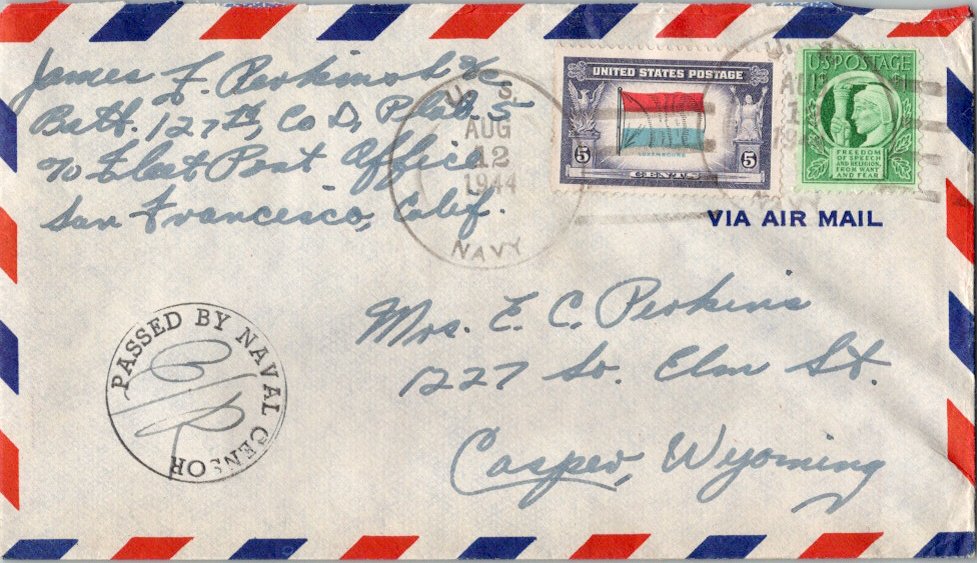 James F. Perkins
Batt. 127th, Co D, Plat. 5
℅ Fleet Post Office
San Francisco, Calif.
U. S.
AUG
12
1944
NAVY
UNITED STATES POSTAGE
LUXEMBOURG
5 5
CENTS
U.
AUG
NAVY
U.S. POSTAGE
1¢
FREEDOM
OF SPEECH
AND RELIGION,
FROM WANT
AND FEAR
VIA AIR MAIL
PASSED BY NAVAL CENSOR
Mrs. E. C. Perkins
1227 So. Elm St.
Casper, Wyoming